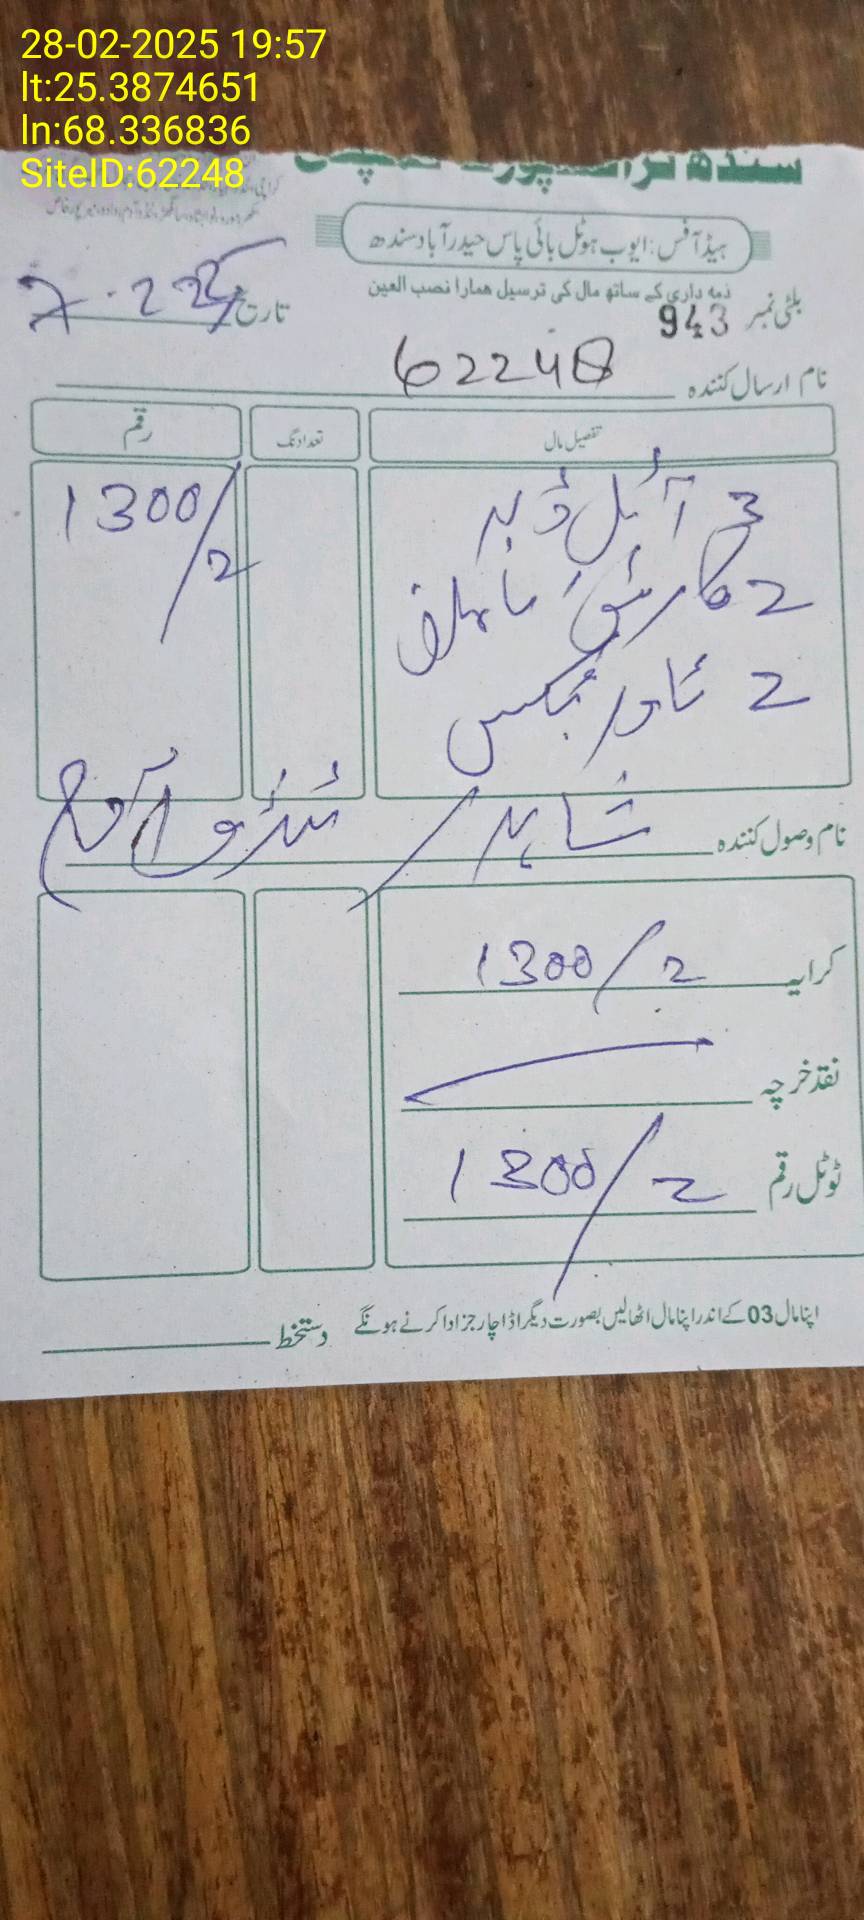 28-02-2025 19:57
lt:25.3874651
ln:68.336836
SiteID:62248
سندھ
ہیڈ آفس: ایوب ہوٹل بائی پاس حیدرآباد سندھ
ذمہ داری کے ساتھ مال کی ترسیل ھمارا نصب العین
بلٹی نمبر 943
تاریخ 7-2-25
نام ارسال کنندہ 62248
تفصیل مال تعداد نگ رقم
3 آئل ڈبہ 1300/2
2 کارٹن
2 ٹاور بکس
نام وصول کنندہ شاہد / ٹنڈو آدم
کرایہ 1300/2
نقد خرچہ
ٹوٹل رقم 1300/2
اپنا مال 03 کے اندر اپنا مال اٹھالیں بصورت دیگر اڈا چارجز ادا کرنے ہونگے
دستخط